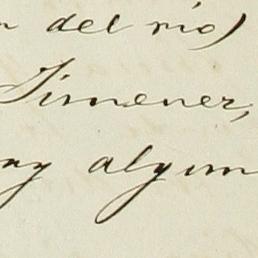 del rio)
Jimenez,
ay algun